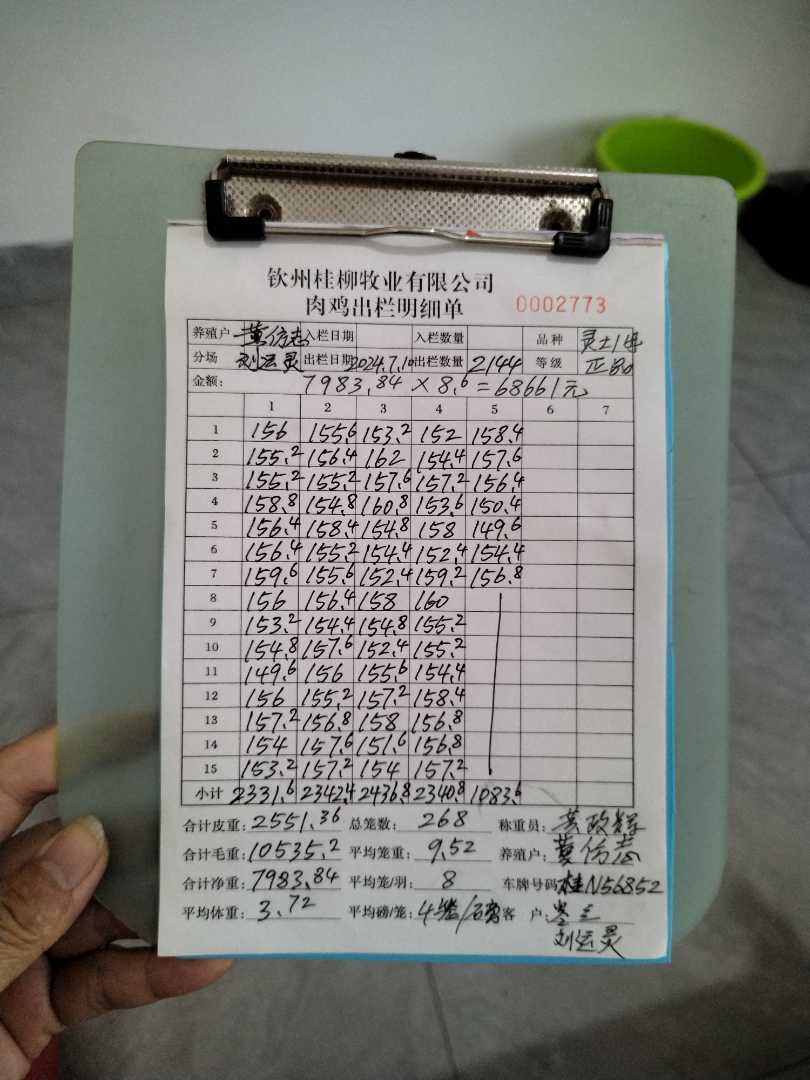 钦州桂柳牧业有限公司
肉鸡出栏明细单 0002773
养殖户 入栏日期 入栏数量 品种 灵土1号
分场 刘运灵 出栏日期 2024.7.10 出栏数量 2144 等级 正品
金额: 7983.84 × 8.6 = 68661元
1 2 3 4 5 6 7
1 156 155.6 153.2 152 158.4
2 155.2 156.4 162 154.4 157.6
3 155.2 155.2 157.6 157.2 156.4
4 158.8 154.8 160.8 153.6 150.4
5 156.4 158.4 154.8 158 149.6
6 156.4 155.2 154.4 152.4 154.4
7 159.6 155.6 152.4 159.2 156.8
8 156 156.4 158 160
9 153.2 154.4 154.8 155.2
10 154.8 157.6 152.4 155.2
11 149.6 156 155.6 154.4
12 156 155.2 157.2 158.4
13 157.2 156.8 158 156.8
14 154 157.6 151.6 156.8
15 153.2 157.2 154 157.2
小计 2331.6 2342.4 2436.8 2340.8 1083.6
合计皮重: 2551.36 总笼数: 268 称重员:
合计毛重: 10535.2 平均笼重: 9.52 养殖户:
合计净重: 7983.84 平均笼/羽: 8 车牌号码 桂N56852
平均体重: 3.72 平均磅/笼: 4 客 户:
刘运灵